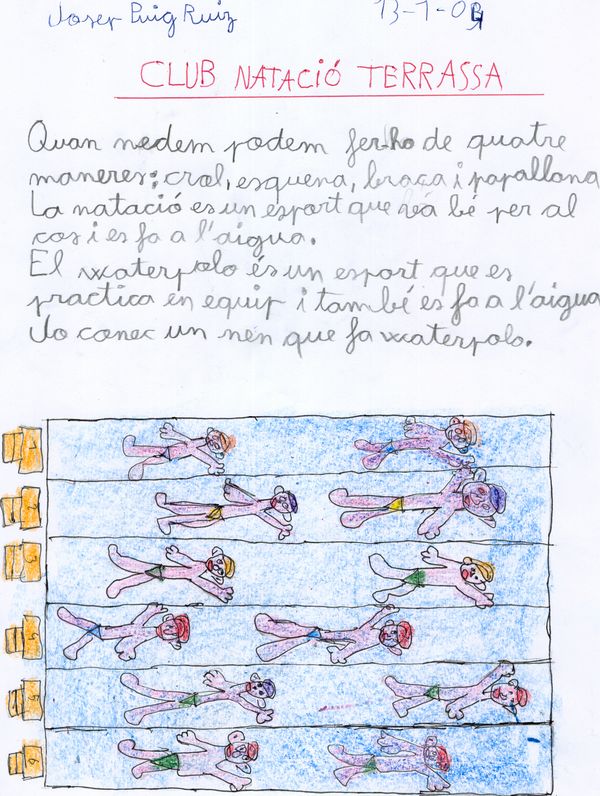 Josep Puig Ruiz 13-1-09
CLUB NATACIÓ TERRASSA
Quan nedem podem fer-ho de quatre
maneres: crol, esquena, braça i papallona
La natació es un esport que va bé per al
cos i es fa a l'aigua.
El waterpolo és un esport que es
practica en equip i també es fa a l'aigua
Jo conec un nen que fa waterpolo.
2
3
4
5
6